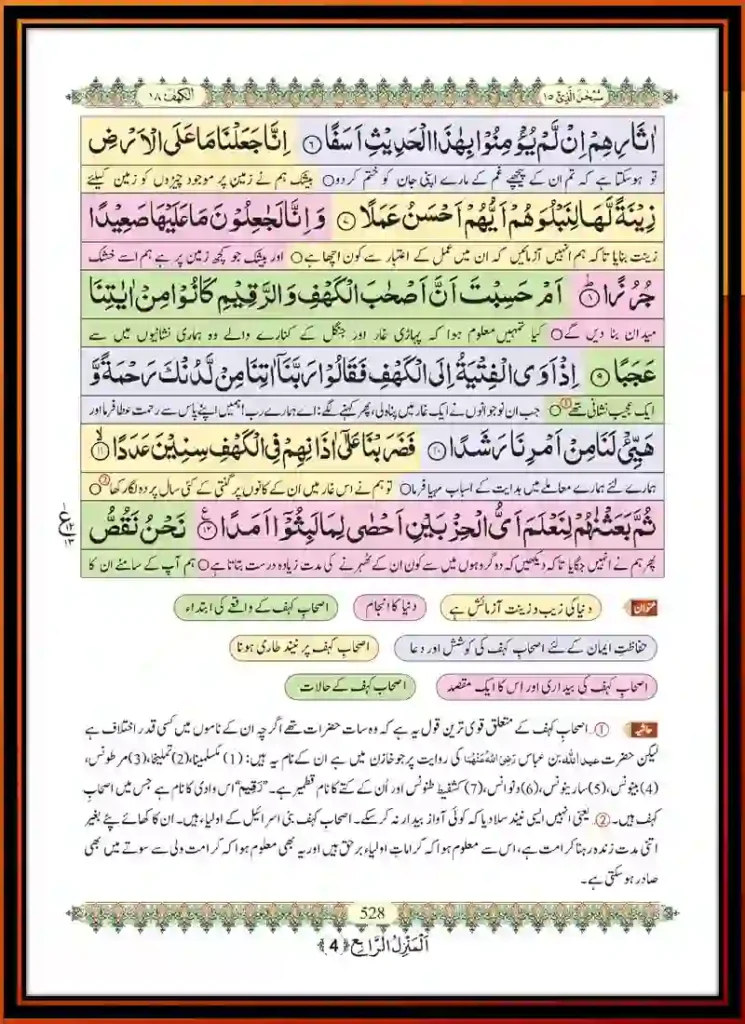 سُبْحٰنَ الَّذِیْۤ ١٥
الكهف ١٨
اٰثَارِهِمْ اِنْ لَّمْ یُؤْمِنُوْا بِهٰذَا الْحَدِیْثِ اَسَفًا ۝٦ اِنَّا جَعَلْنَا مَا عَلَى الْاَرْضِ
تو ہوسکتا ہے کہ تم ان کے پیچھے غم کے مارے اپنی جان کو ختم کر دو○ بیشک ہم نے زمین پر موجود چیزوں کو زمین کیلئے
زِیْنَةً لَّهَا لِنَبْلُوَهُمْ اَیُّهُمْ اَحْسَنُ عَمَلًا ۝٧ وَ اِنَّا لَجٰعِلُوْنَ مَا عَلَیْهَا صَعِیْدًا
زینت بنایا تاکہ ہم انہیں آزمائیں کہ ان میں عمل کے اعتبار سے کون اچھا ہے○ اور بیشک جو کچھ زمین پر ہے ہم اسے خشک
جُرُزًا ۝٨ اَمْ حَسِبْتَ اَنَّ اَصْحٰبَ الْكَهْفِ وَ الرَّقِیْمِ كَانُوْا مِنْ اٰیٰتِنَا
میدان بنا دیں گے○ کیا تمہیں معلوم ہوا کہ پہاڑی غار اور جنگل کے کنارے والے وہ ہماری نشانیوں میں سے
عَجَبًا ۝٩ اِذْ اَوَى الْفِتْیَةُ اِلَى الْكَهْفِ فَقَالُوْا رَبَّنَاۤ اٰتِنَا مِنْ لَّدُنْكَ رَحْمَةً وَّ
ایک عجیب نشانی تھے①○ جب ان نوجوانوں نے ایک غار میں پناہ لی، پھر کہنے لگے: اے ہمارے رب! ہمیں اپنے پاس سے رحمت عطا فرما اور
هَیِّئْ لَنَا مِنْ اَمْرِنَا رَشَدًا ۝١٠ فَضَرَبْنَا عَلٰۤى اٰذَانِهِمْ فِی الْكَهْفِ سِنِیْنَ عَدَدًا ۝١١
ہمارے لئے ہمارے معاملے میں ہدایت کے اسباب مہیا فرما○ تو ہم نے اس غار میں ان کے کانوں پر گنتی کے کئی سال پردہ لگا رکھا②○
ثُمَّ بَعَثْنٰهُمْ لِنَعْلَمَ اَیُّ الْحِزْبَیْنِ اَحْصٰى لِمَا لَبِثُوْۤا اَمَدًا ۝١٢ نَحْنُ نَقُصُّ
پھر ہم نے انہیں جگایا تاکہ دیکھیں کہ دو گروہوں میں سے کون ان کے ٹھہرنے کی مدت زیادہ درست بتاتا ہے○ ہم آپ کے سامنے ان کا
عنوان دنیا کی زیب و زینت آزمائش ہے دنیا کا انجام اصحابِ کہف کے واقعے کی ابتداء
حفاظتِ ایمان کے لئے اصحابِ کہف کی کوشش اور دعا اصحابِ کہف پر نیند طاری ہونا
اصحابِ کہف کی بیداری اور اس کا ایک مقصد اصحابِ کہف کے حالات
حاشیہ ①۔ اصحابِ کہف کے متعلق قوی ترین قول یہ ہے کہ وہ سات حضرات تھے اگرچہ ان کے ناموں میں کسی قدر اختلاف ہے
لیکن حضرت عبد اللہ بن عباس رَضِیَ اللهُ عَنْهُمَا کی روایت پر جو خازن میں ہے ان کے نام یہ ہیں: (1) مکسلمینا، (2) تملیخا، (3) مرطونس،
(4) بینونس، (5) سارینونس، (6) ذونوانس، (7) کشفیط طنونس اور اُن کے کتے کا نام قطمیر ہے۔ ”رَقِیْم“ اس وادی کا نام ہے جس میں اصحابِ
کہف ہیں۔ ②۔ یعنی انہیں ایسی نیند سلا دیا کہ کوئی آواز بیدار نہ کر سکے۔ اصحابِ کہف بنی اسرائیل کے اولیاء ہیں۔ ان کا کھائے پئے بغیر
اتنی مدت زندہ رہنا کرامت ہے، اس سے معلوم ہوا کہ کراماتِ اولیاء برحق ہیں اور یہ بھی معلوم ہوا کہ کرامت ولی سے سوتے میں بھی
صادر ہو سکتی ہے۔
528
اَلْمَنْزِلُ الرَّابِع ﴿4﴾